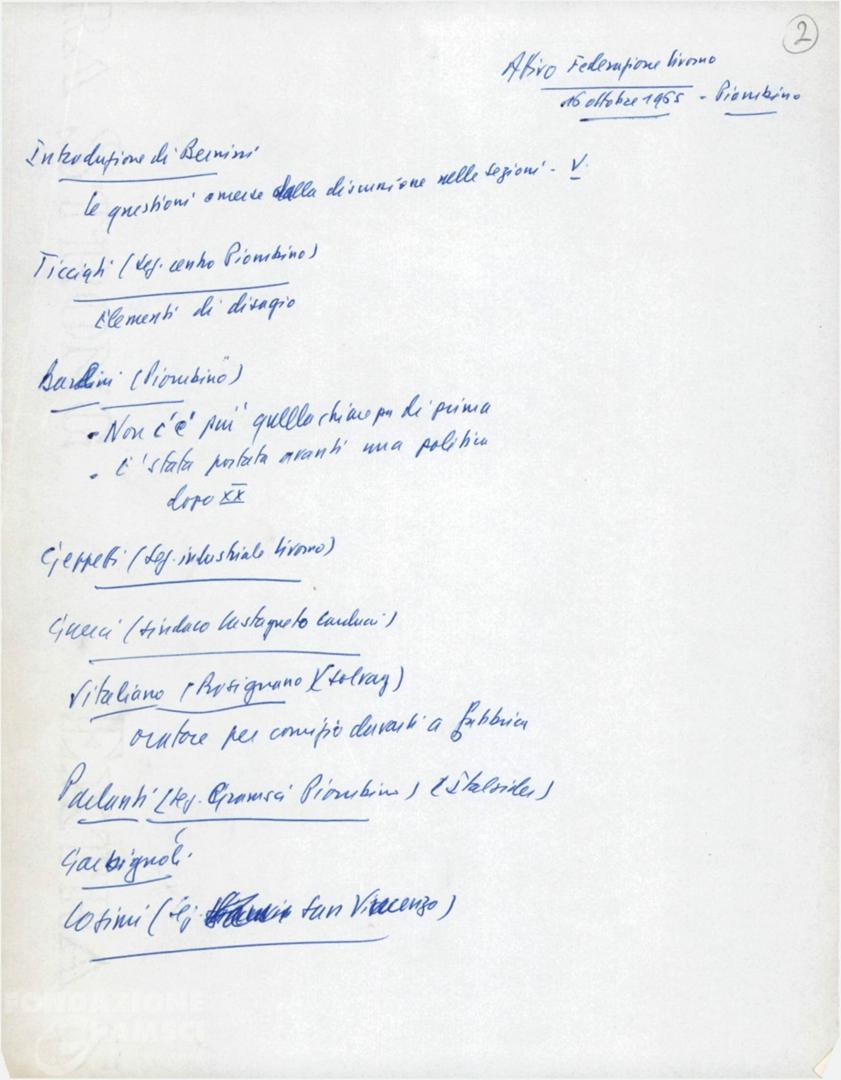 2
Attivo Federazione Livorno
16 ottobre 1965 - Piombino
Introduzione di Bernini
le questioni emerse dalla discussione nelle sezioni - V.
(seg. centro Piombino)
Elementi di disagio
(Piombino)
- Non c'è più quella chiarezza di prima
- È stata portata avanti una politica
dopo XX
Geppetti (seg. industriale Livorno)
(sindaco Castagneto Carducci)
Vitaliano (Rosignano) (Solvay)
oratore per comizio davanti a fabbrica
(seg. Gramsci Piombino) (Italsider)
Garbignoli
Cosimi (seg. San Vincenzo)
FONDAZIONE
GRAMSCI